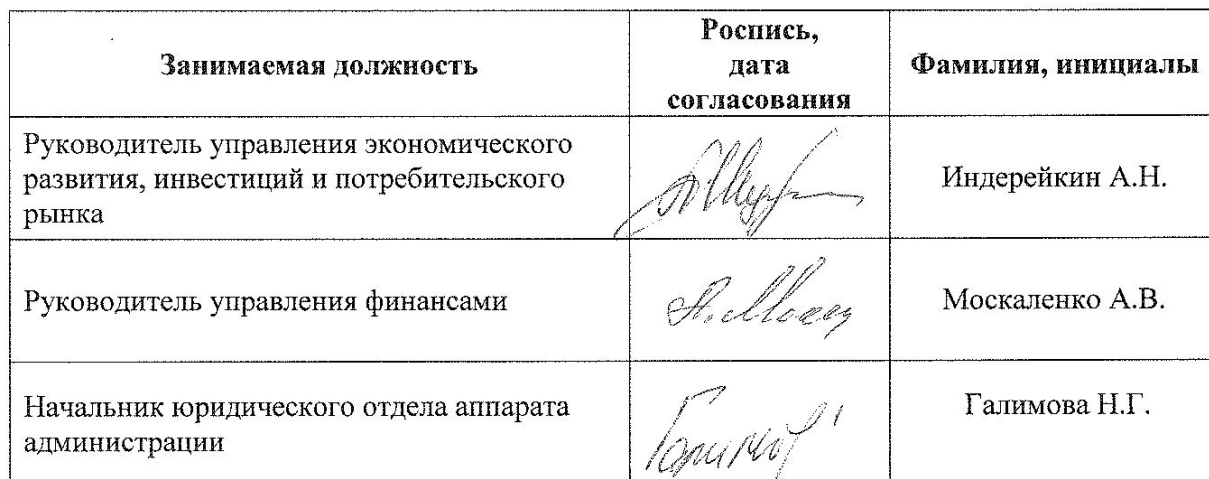 Занимаемая должность
Роспись,
дата
согласования
Фамилия, инициалы
Руководитель управления экономического
развития, инвестиций и потребительского
рынка
Индерейкин А.Н.
Руководитель управления финансами
Москаленко А.В.
Начальник юридического отдела аппарата
администрации
Галимова Н.Г.